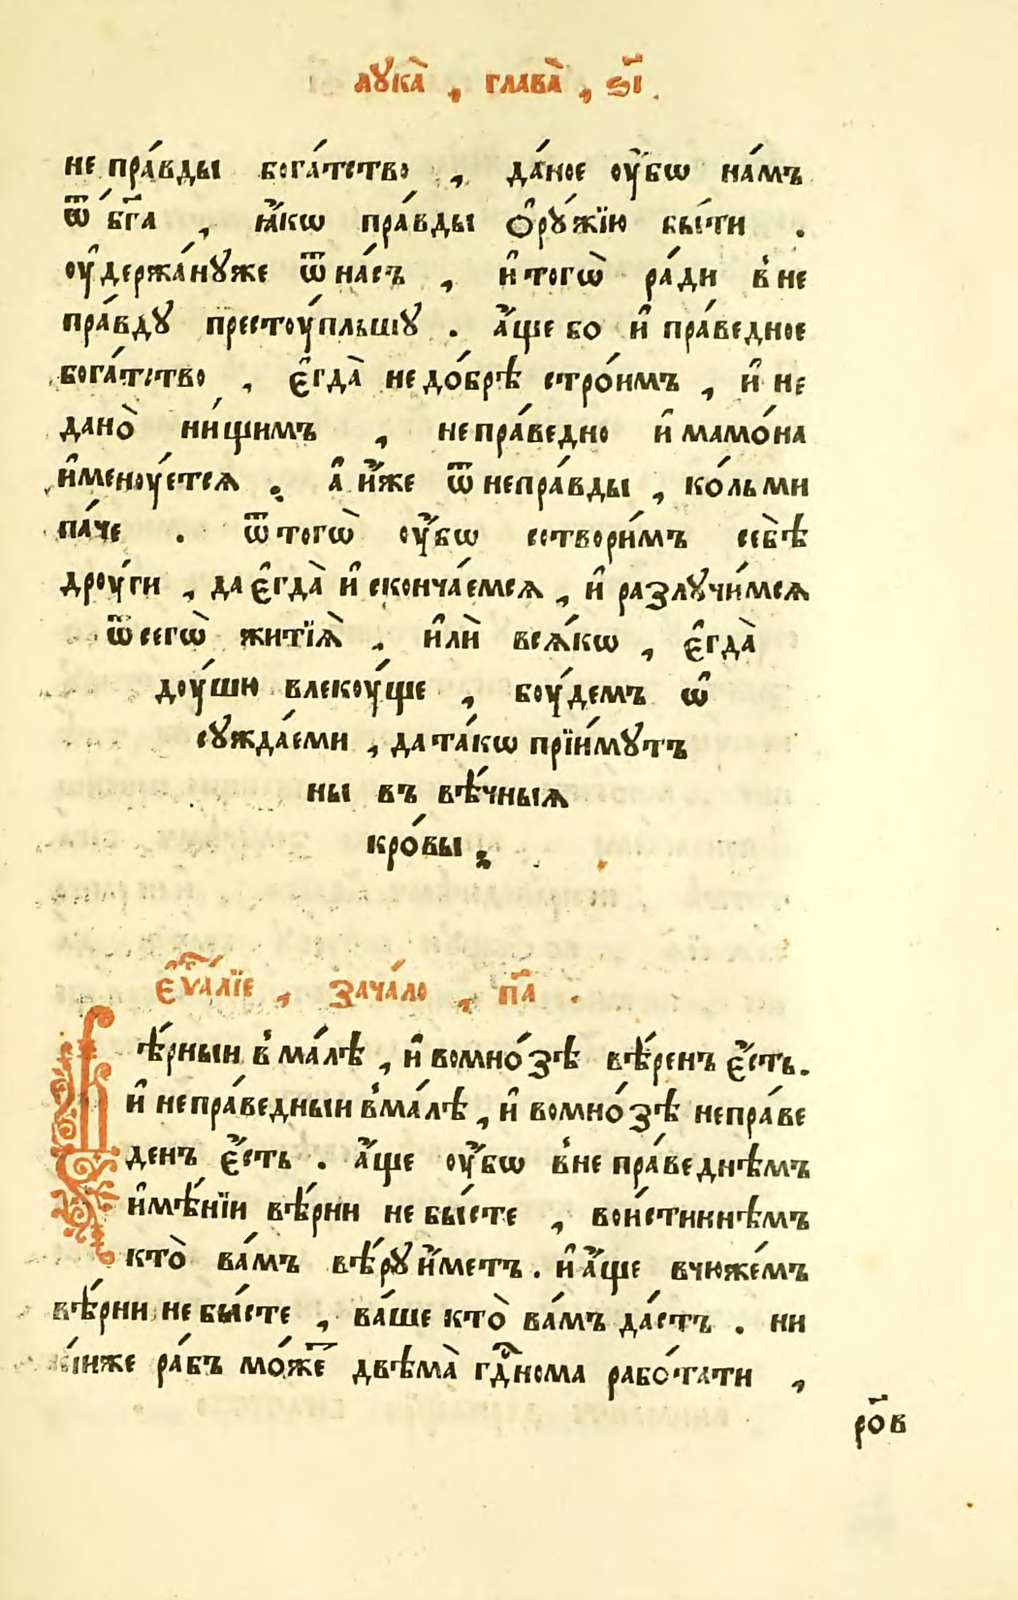 лꙋка̀ , глава̀ , ѕ҃і .
не пра́вды бога́тство , да́ное ᲂу҆́бѡ на́мъ
ѿ бг҃а , ꙗ҆́кѡ пра́вды ѻ҆рꙋ́жїю бы́ти .
ᲂу҆держа́нꙋже ѿ на́съ , и҆ тогѡ̀ ра́ди в не
пра́вдꙋ престоу́пльшꙋ . а҆́ще бо и҆ пра́ведное
бога́тство , є҆гда̀ не до́брѣ стро́имъ , и҆ не
дано̀ ни́щимъ , непра́ведно и҆ мамо́на
и҆меноу́етсѧ . а҆ и҆́же ѿ непра́вды , ко́льми
па́че . ѿ тогѡ̀ ᲂу҆́бѡ сотвори́мъ себѣ̀
дроу́ги , да є҆гда̀ и҆ сконча́емсѧ , и҆ разлꙋчи́мсѧ
ѿ сегѡ̀ житїѧ̀ , и҆лѝ всѧ́кѡ , є҆гда̀
доу́шю влекоу́ще , боу́демъ ѡ҆
сꙋжда́еми , да та́кѡ прїи́мꙋтъ
ны въ вѣ́чныѧ
кро́вы ;
є҆ѵⷢ҇алїе , зача́ло , п҃а .
Вѣ́рныи в ма́лѣ , и҆ во мно́зѣ вѣ́ренъ є҆́сть .
и҆ непра́ведныи в ма́лѣ , и҆ во мно́зѣ непра́ве
денъ є҆́сть . а҆́ще ᲂу҆́бѡ в непра́веднѣмъ
и҆мѣ́нїи вѣ́рни не бы́сте , во и́стиннѣмъ
кто̀ ва́мъ вѣ́рꙋ и҆́метъ . и҆ а҆́ще в чюже́мъ
вѣ́рни не бы́сте , ва́ше кто̀ ва́мъ да́стъ . ни
кі́иже ра́бъ мо́жеⷮ двѣма̀ гдⷭ҇нома рабо́тати ,
ро҃в